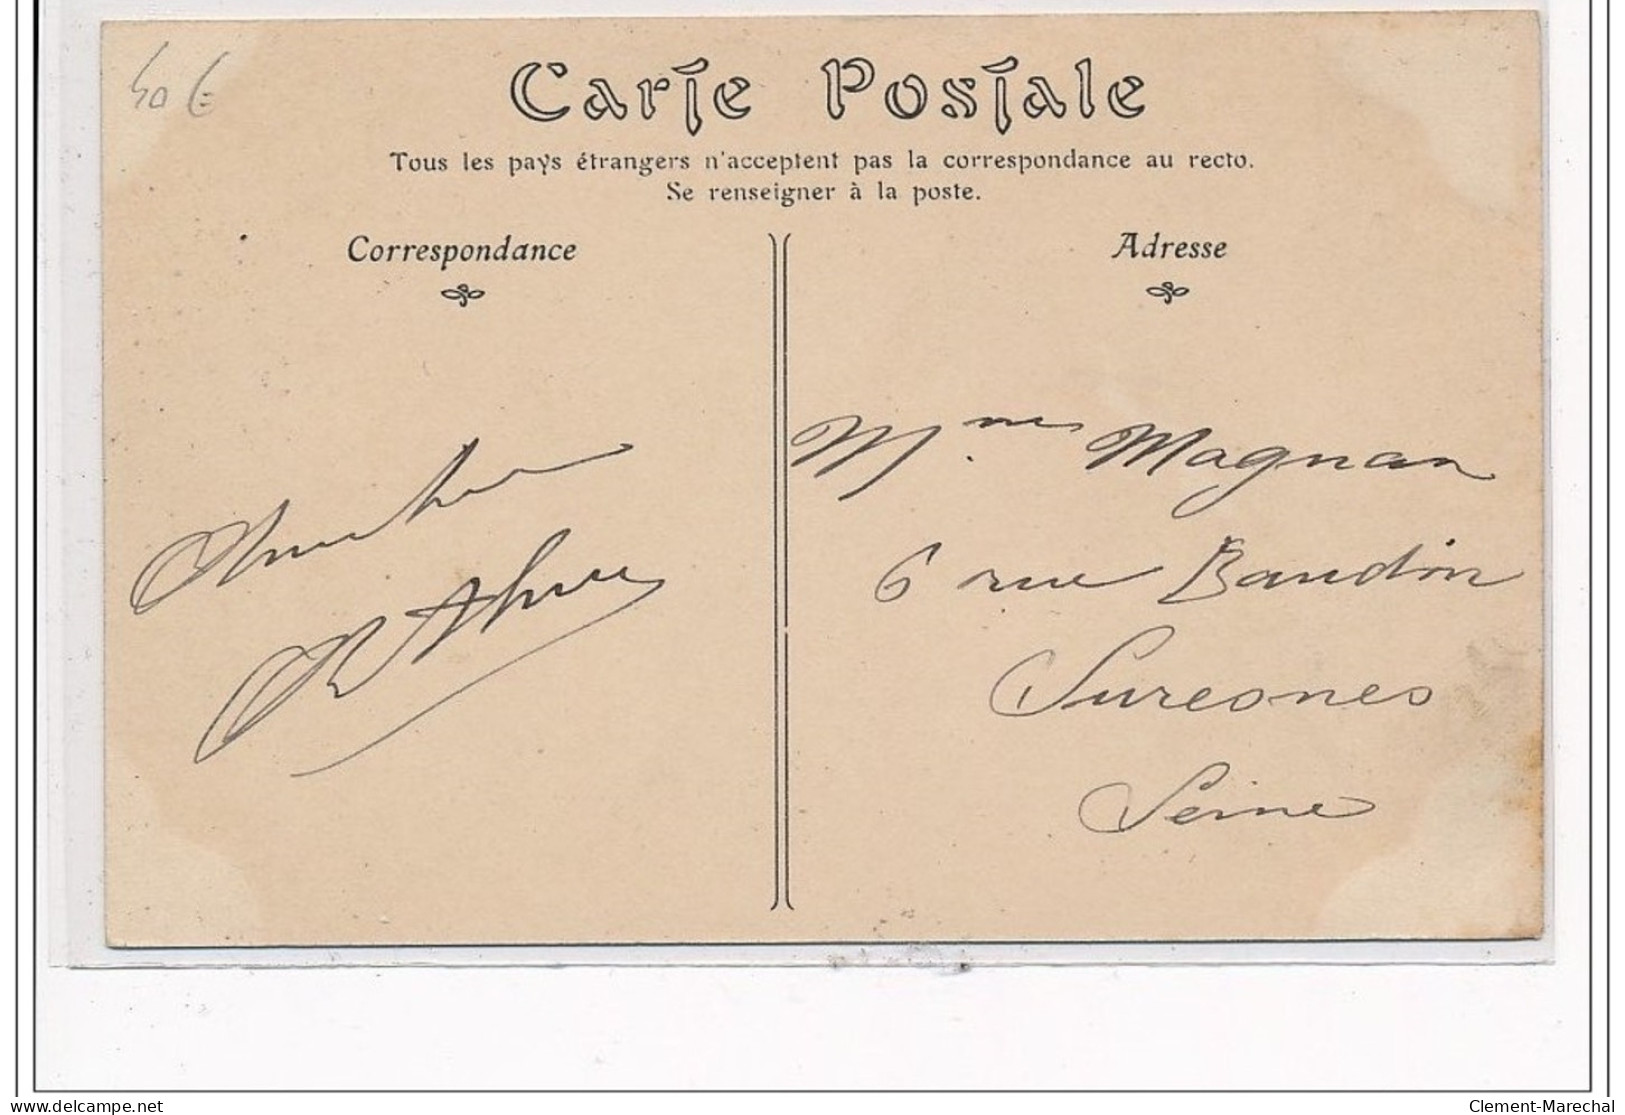 Carte Postale
Tous les pays étrangers n'acceptent pas la correspondance au recto.
Se renseigner à la poste.
Correspondance
Adresse
Mme Magnan
6 rue Baudin
Suresnes
Seine
delcampe.net
Clement-Marechal